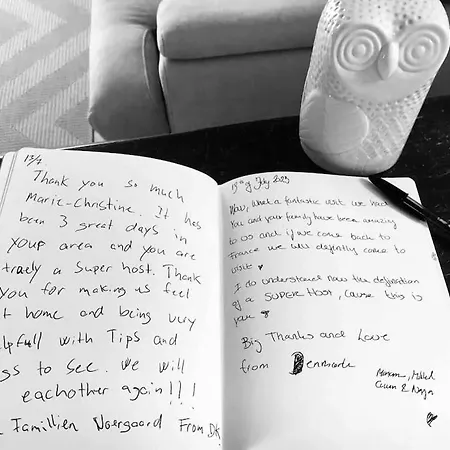 13/7
Thank you so much
Marie-Christine. It has
been 3 great days in
your area and you are
truly a Super host. Thank
you for making us feel
t home and being very
elpfull with Tips and
gs to see. We will
eachother again!!!
Famillien Noergaard From DK
13th of July 2023
Wow, what a fantastic visit we had
You and your family have been amazing
to us and if we come back to
France we will defintly come to
visit ♥
I do understand now the defination
of a SUPER Host, cause this is
you
Big Thanks and Love
from Denmark